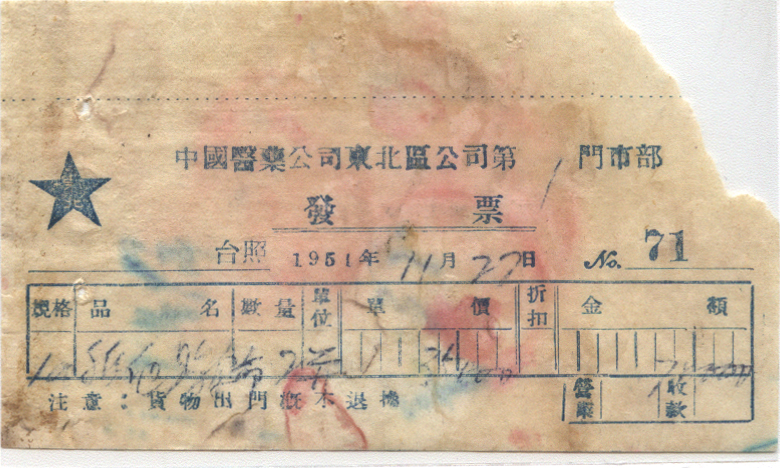 中國醫藥公司東北區公司第 1 門市部
發票
台照 1951年 11月 27日 No. 71
規格 品名 數量 單位 單價 折扣 金額
注意：貨物出門概不退換 營業 收款